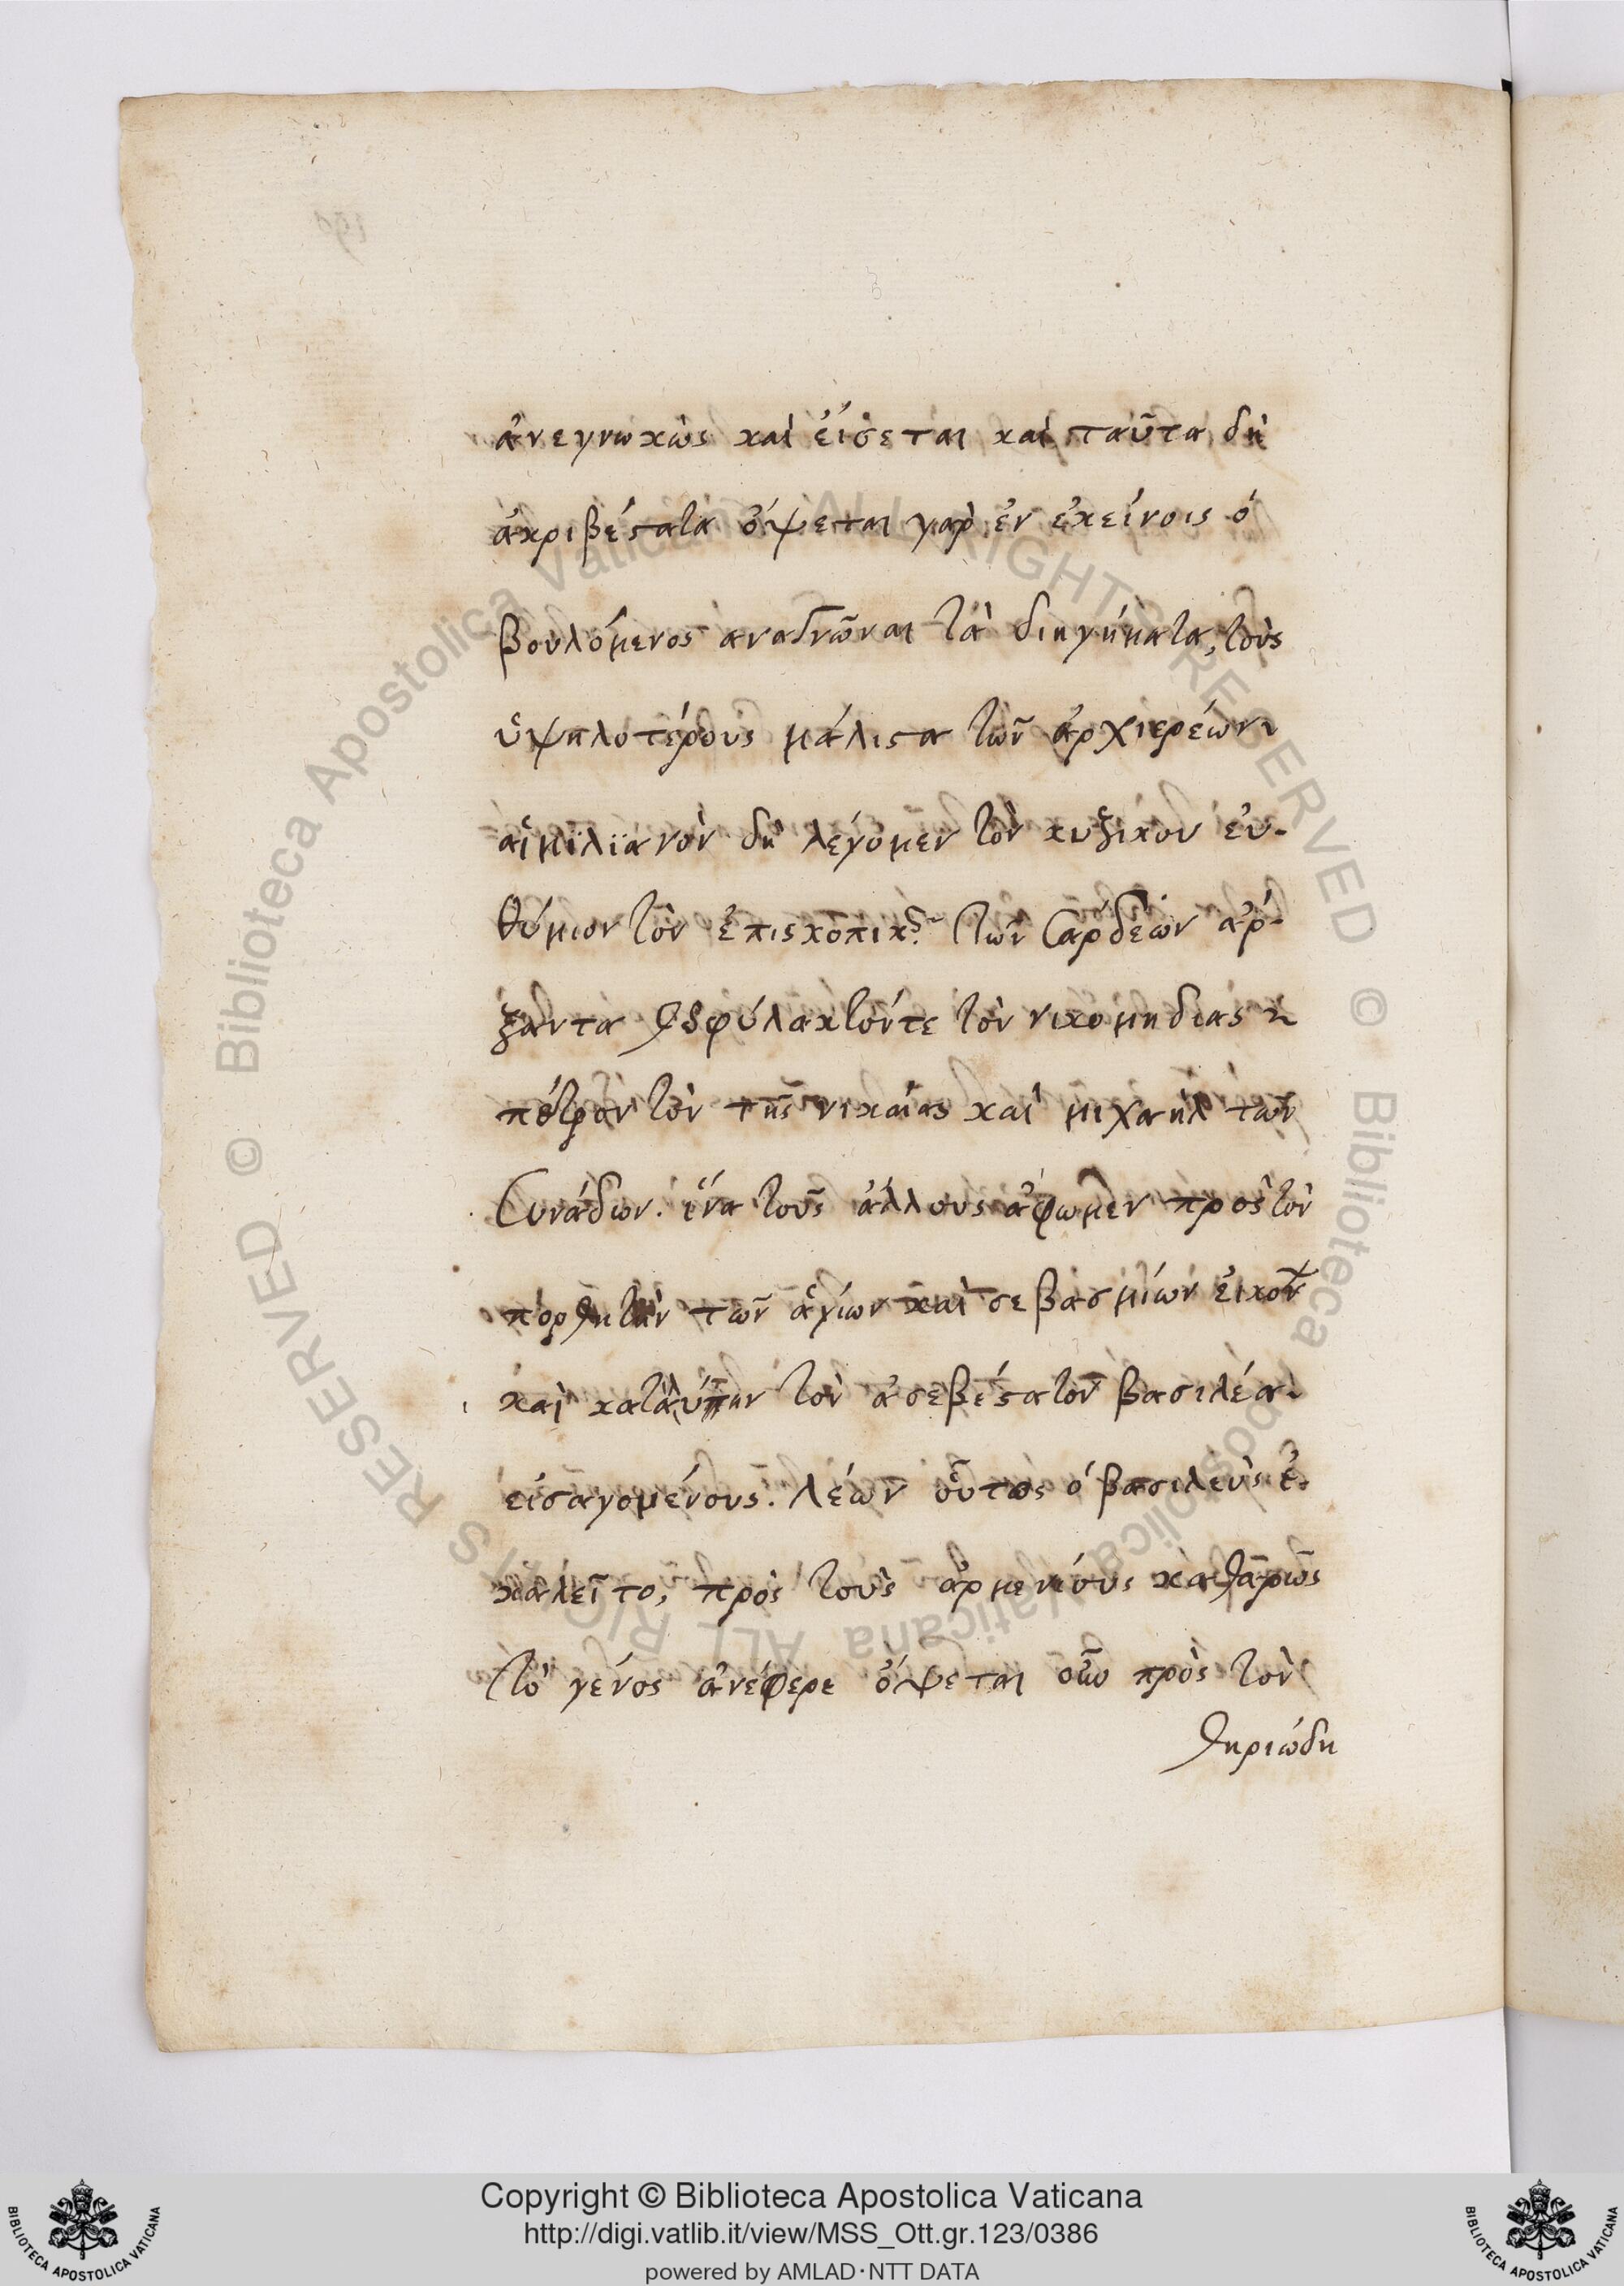 ἀνεγνωκὼς καὶ εἴσεται καὶ ταῦτα δὴ
ἀκριβέστατα ὄψεται γαρ ἐν ἐκείνοις ὁ
βουλόμενος αναγνῶναι τὰ διηγήματα, τοὺς
ὑψηλοτέρους μάλιστα τῶν ἀρχιερέων
αἰμϊλϊανὸν δὴ λέγομεν τὸν κυζίκου ἐυ-
θύμιον τὸν ἐπισκοπικῶς τῶν σάρδεων ἀρ-
ξαντα θεοφύλακτόντε τὸν νικομηδιας
πέτρον τὸν τῆς νικαίας καὶ μιχαηλ τῶν
Συνάδων. ἵνα τοῦς ἄλλους ἀφῶμεν πρὸς τὸν
πορθητὴν τῶν ἁγίων καὶ σεβασμίων εἰκον
καὶ καταλύτην τὸν ἀσεβέστατον βασιλέα
εἰσαγομένους. λέων οὗτος ὁ βασιλεὺς ἐ-
καλεῖτο, πρὸς τοὺς ἀρμενίους καθαρῶς
τὸ γένος ἀνέφερε ὄψεται οὖν πρὸς τὸν
θηριώδη
Copyright © Biblioteca Apostolica Vaticana
http://digi.vatlib.it/view/MSS_Ott.gr.123/0386
powered by AMLAD·NTT DATA
BIBLIOTECA APOSTOLICA VATICANA
BIBLIOTECA APOSTOLICA VATICANA
© Biblioteca Apostolica Vaticana ALL RIGHTS RESERVED © Biblioteca Apostolica Vaticana ALL RIGHTS RESERVED